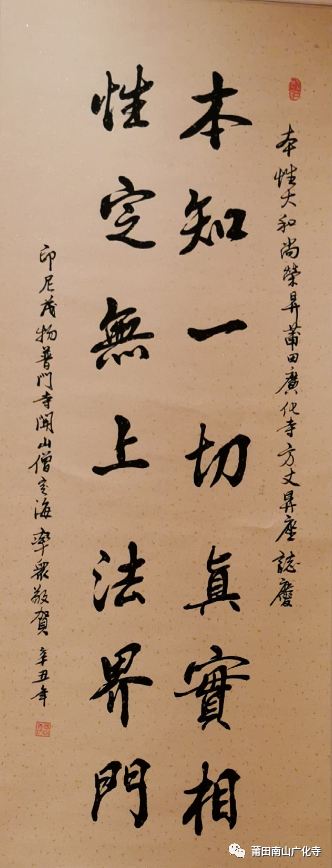 本性大和尚榮昇莆田廣化寺方丈昇座誌慶
本知一切真實相
性定無上法界門
印尼茂物普門寺開山僧定海率眾敬賀 辛丑年
莆田南山广化寺